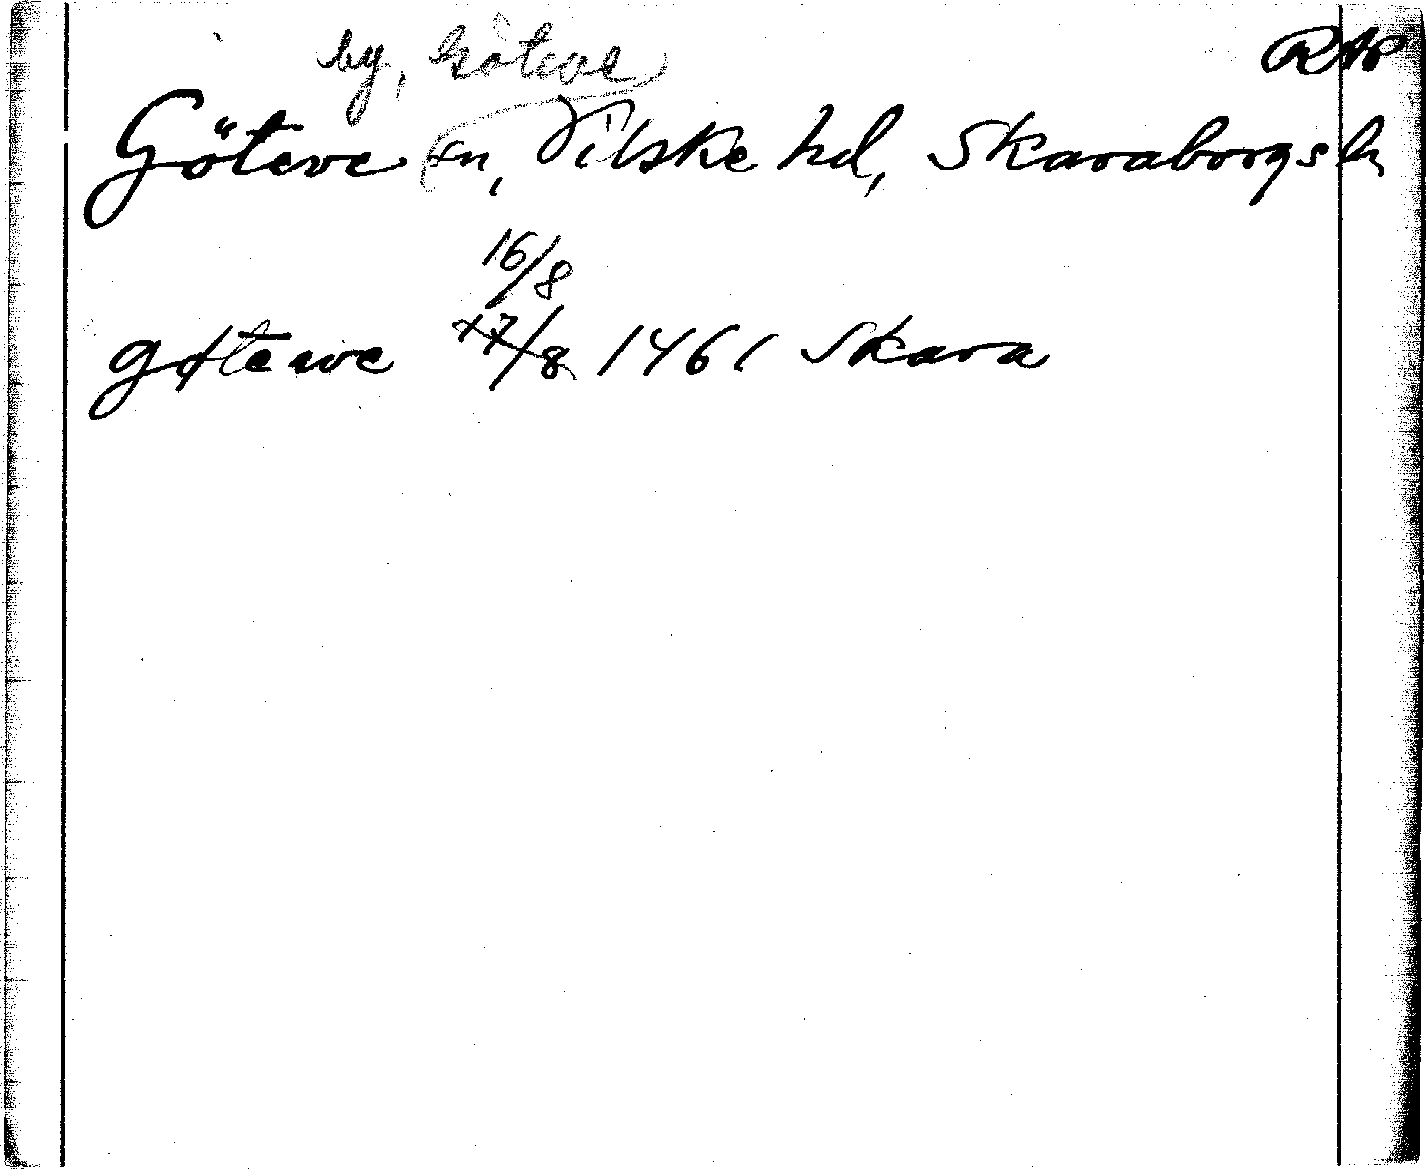 by, Göteve
RAP
Göteve sn, Vilske hd, Skaraborgs l.
16/8
gøtewe 17/8 1461 Skara